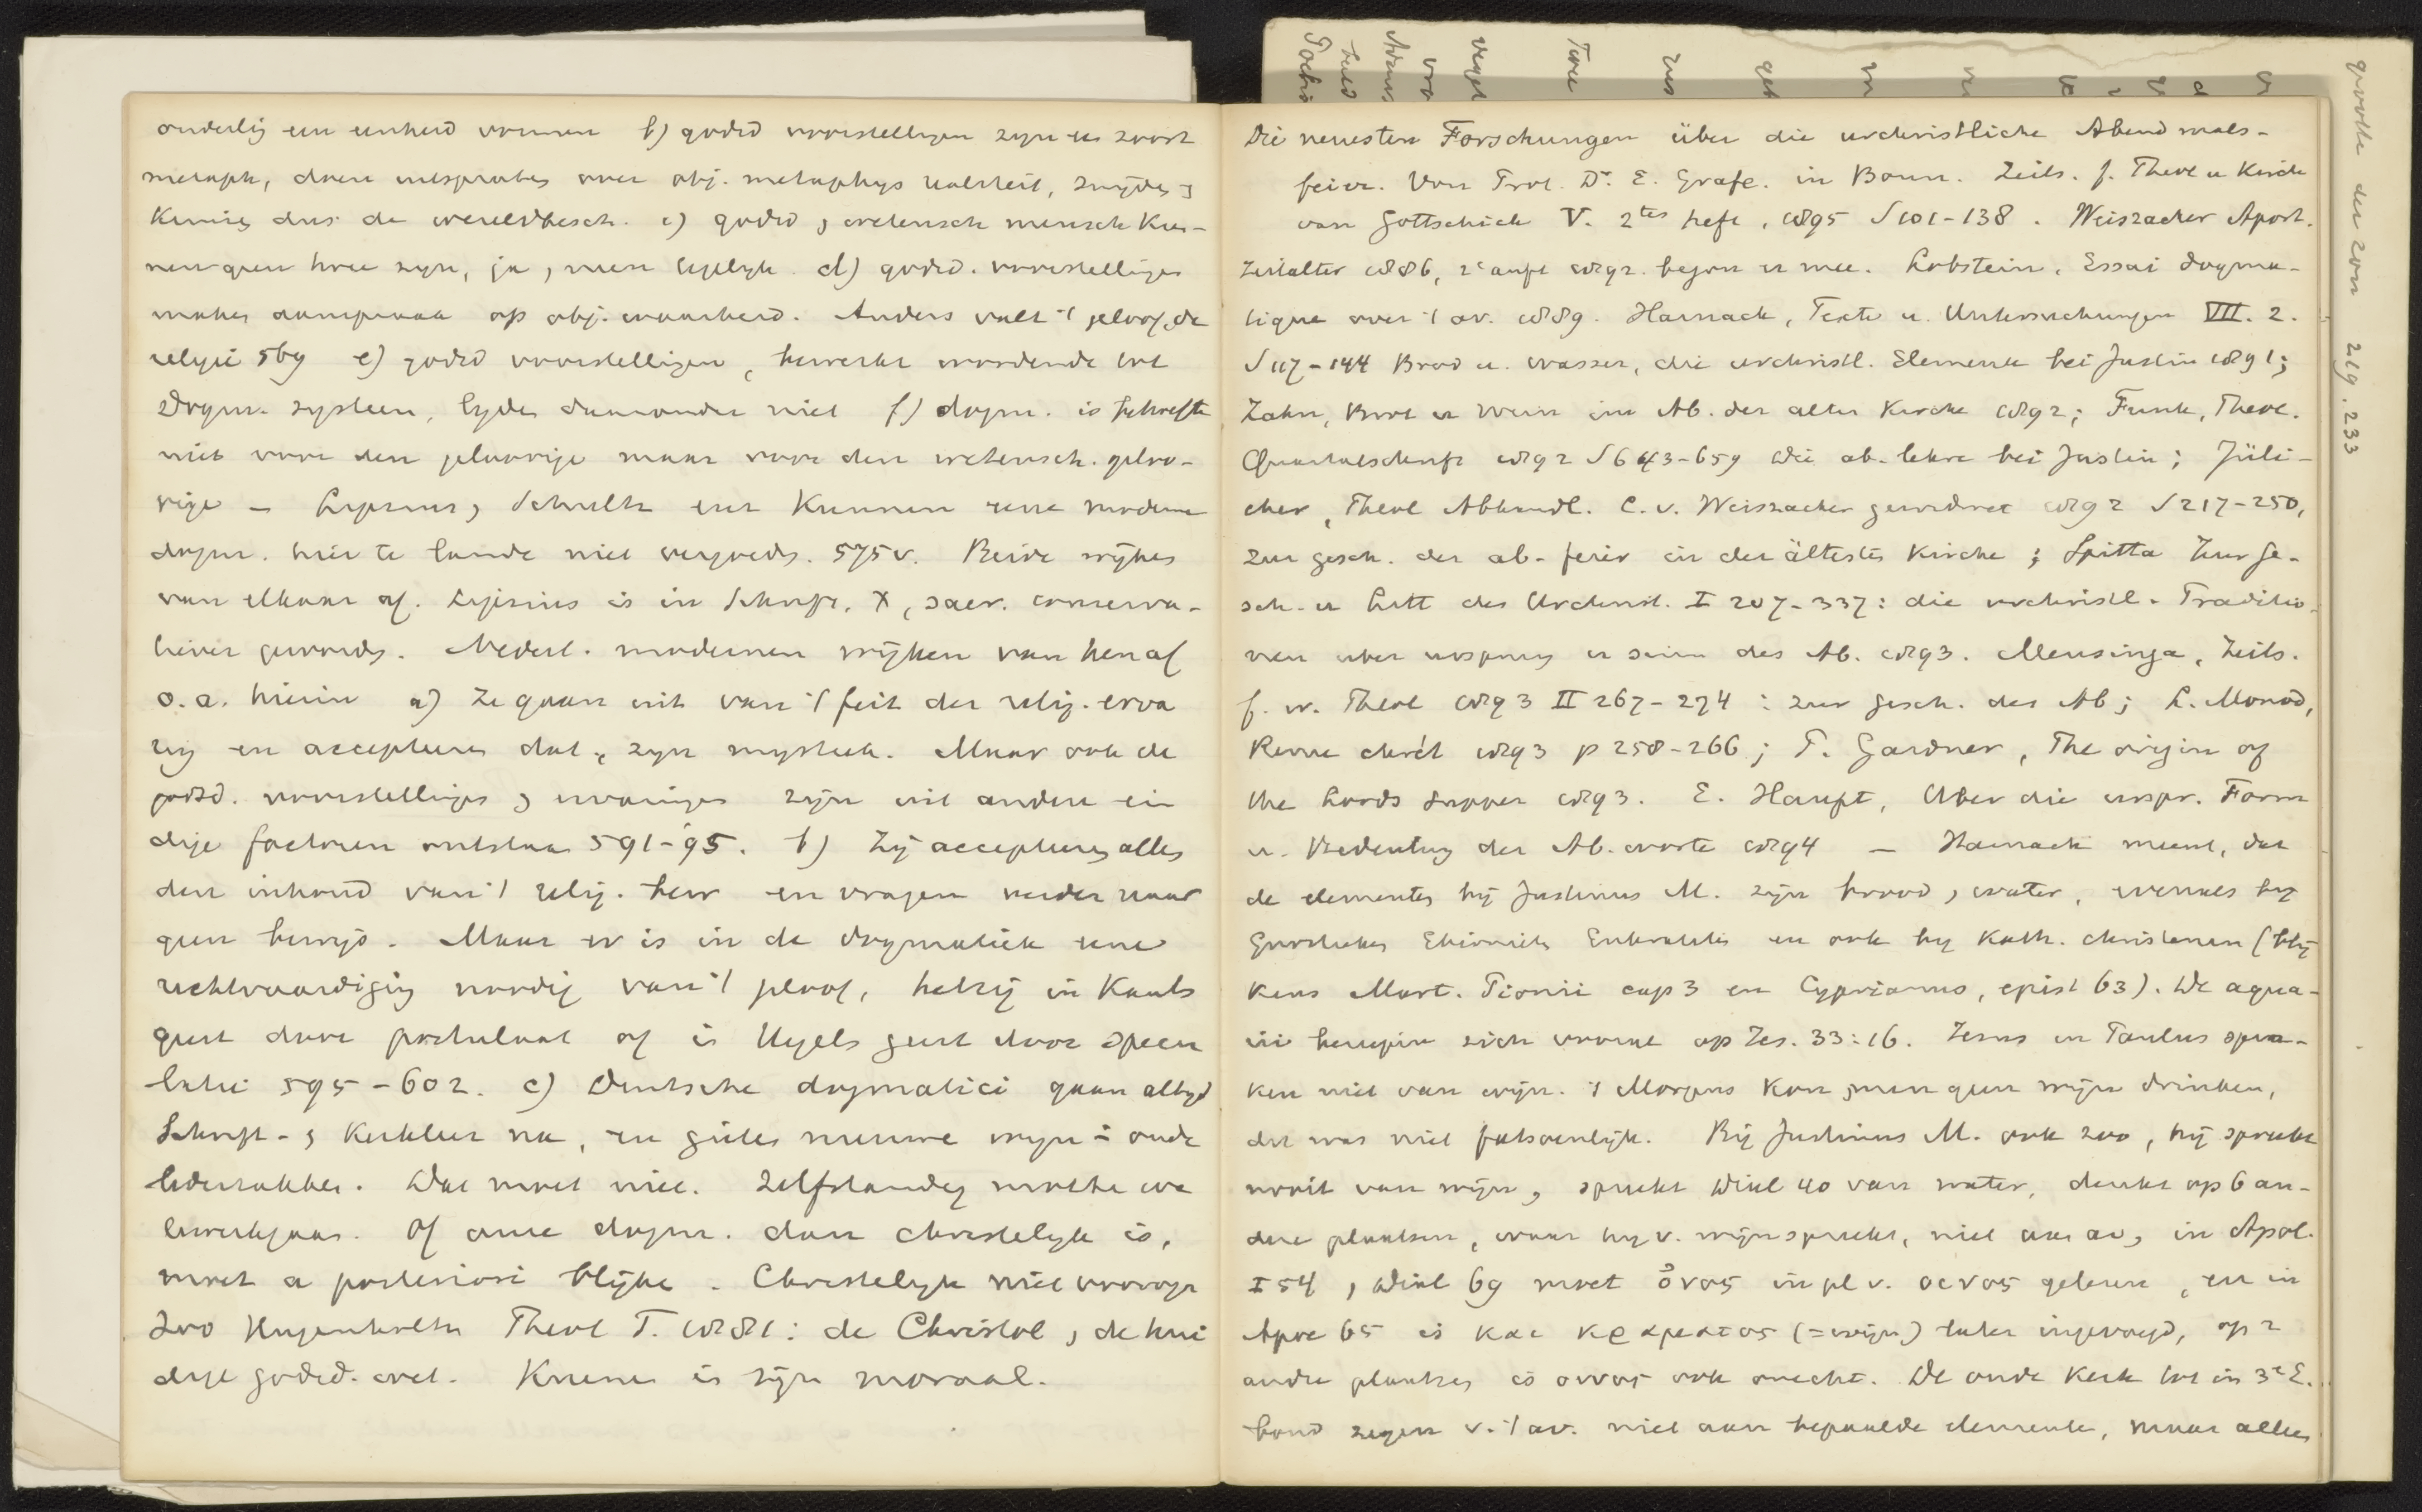 onderlig een eenheid vormen b) godsd voorstellingen zyn een soort
metaph, doen uitspraken over obj. metaphys realiteit, snyden
Kunnen dus de wereldbesch. c) godsd, wetensch mensch Kun-
nen geen twee zyn, ja, men tegelyk. d) godsd. voorstellingen
maken aanspraak op obj. waarheid. Anders valt 't geloof, de
religie 569 e) godsd voorstellingen, bewerkt wordende tot
dogm. systeem, lyden daaronder niet f) dogm. is behoefte
niet voor den geloovige maar voor den wetensch. geloo-
vige – Lipsius, Schultz enz Kunnen onze moderne
dogm. hier te lande niet vergoeden. 575 v. Beide wyken
van elkaar af. Lipsius is in Schrift, X, sacr. conserva-
tiever geworden. Nederl. modernen wijken van hen af
o. a. hierin a) Ze gaan uit van 't feit der relig. erva
ring en accepteeren dat, zyn mystiek. Maar ook de
godsd. voorstellingen, ervaringen zijn uit andere ein
dige factoren ontstaan 591-95. b) Zij accepteeren alles
den inhoud van 't relig. bew en vragen verder naar
geen bewijs. Maar er is in de dogmatiek eene
rechtvaardiging noodig van 't geloof, hetzij in Kants
geest door postulaat of in Hegels geest door specu
latie 595-602. c) Duitsche dogmatici gaan altyd
Schrift-, Kerkleer na, en gieten nieuwe wyn in oude
lederzakken. Dat moet niet. Zelfstandig moeten we
te werk gaan. Of onze dogm. dan christelyk is,
moet a posteriori blijken. Christelyk niet vooraf
Zoo Hugenholtz Theol T. 1881: de Christol, de hui
dige godsd. wet. Kuenen is zijn moraal.
Die neuesten Forschungen über die urchristliche Abendmals-
feier. Von Prof. Dr. E. Grafe. in Bonn. Zeits. f. Theol u Kirche
van Gottschick V. 2tes heft, 1895 S 101-138. Weiszacker Apost.
Zeitalter 1886, 2e aufl 1892. begon er mee. Lobstein, Essai dogma-
tique over 't av. 1889. Harnack, Texte u. Untersuchungen VII. 2.
S 117-144 Brod u. wasser, die urchristl. Elemente bei Justin 1891;
Zahn, Brot u Wein im Ab. der alten Kirche 1892; Funk, Theol.
Quartalschrift 1892 S 643-659 die ab. lehre bei Justin; Jüli-
cher, Theol Abhandl. C. v. Weiszacker gewidmet 1892 S 217-250,
zur gesch. der ab-feier in der ältesten Kirche; Spitta Zur Ge-
sch. u Litt des Urchrist. I 207-337: die urchristl. Traditio-
nen uber urspung u sinn des Ab. 1893. Mensinga, Zeits.
f. w. Theol 1893 II 267-274: zur gesch. des Ab; L. Monod,
Revue chrét 1893 p 258-266; P. Gardner, The origin of
the Lords Supper 1893. E. Haupt, Uber die urspr. Form
u. Bedeutung der Ab. worte 1894 – Harnack meent, dat
de elementen bij Justinus M. zijn brood, water, evenals by
Gnostieken Ebionieten Enkratiten en ook by Kath. christenen (blij
kens Mart. Pionii cap 3 en Cyprianus, epist 63). De aqua-
rii beriepen zich vooral op Jes. 33:16. Jezus en Paulus spra-
ken niet van wijn. 's Morgens Kon men geen wijn drinken,
dat was niet fatsoenlijk. Bij Justinus M. ook zoo, hij spreekt
nooit van wijn, spreekt Dial 40 van water, denkt op 6 an-
dere plaatsen, waar hy v. wijn spreekt, niet aan av, in Apol.
I 54, Dial 69 moet ὄνος in pl v. οινος gelezen, en in
Apol 65 is και κραματος (= wijn) later ingevoegd, op 2
andre plaatsen is οινος ook onecht. De oude Kerk tot in 3e E.
bond zegen v. 't av. niet aan bepaalde elementen, maar alleen
grootte der zon 219. 233